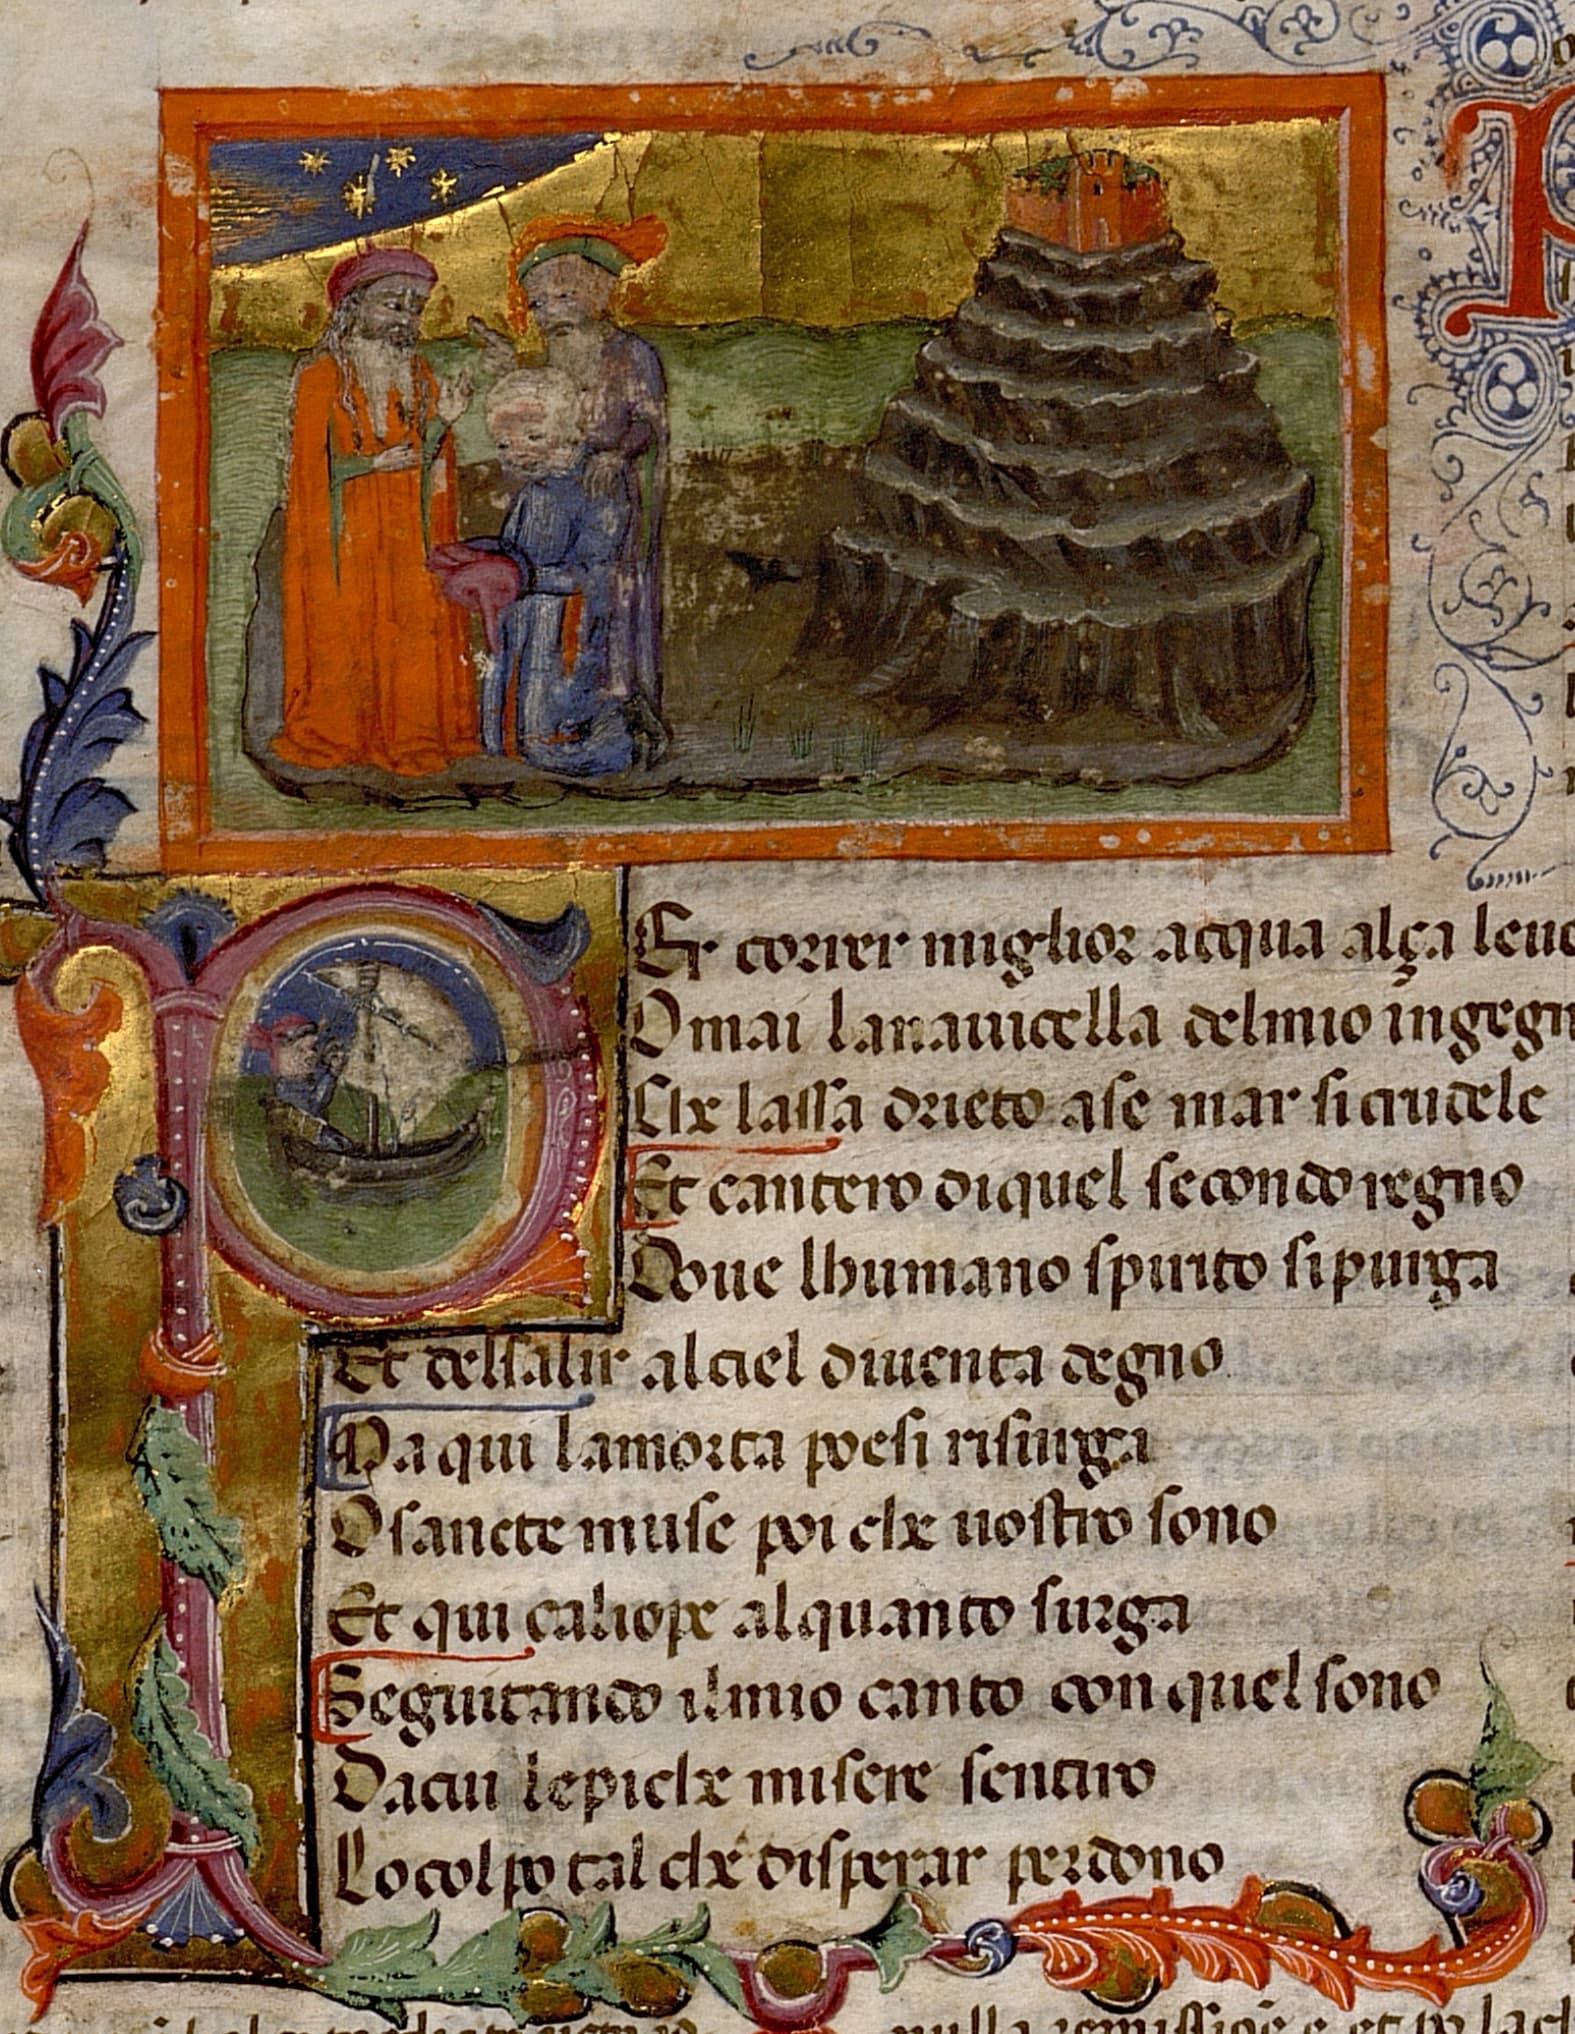 PEr correr miglior acqua alça leue
Omai la nauicella del mio ingegn
Che lassa drieto a se mar si crudele
Et cantero di quel secondo regno
Doue lhumano spirito si purga
Et del salir al ciel diuenta degno
Ma qui la morta poesi risurga
O sancte muse poi che uostro sono
Et qui caliope alquanto surga
Seguitando il mio canto con quel sono
Da cui le piche misere sentiro
Lo colpo tal che disperar perdono